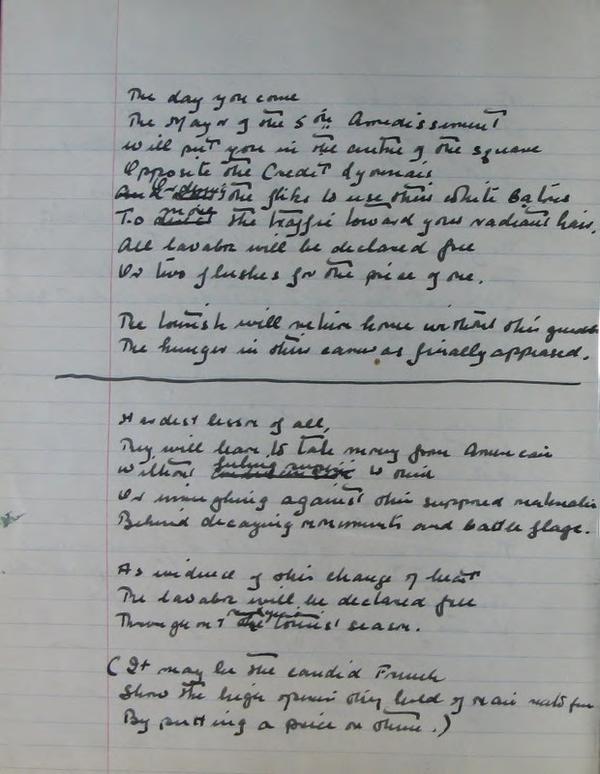 The day you come
The Mayor of the 5th Arrondissement
Will put you in the centre of the square
Opposite the Credit Lyonnais
And the fliks to use their white batons
To more the traffic toward your radiant hair,
All lavabos will be declared free
Or two flushes for the price of one.
The tourists will return home without their
The hunger in their cameras finally appeased.
Hardest lesson of all,
They will learn to take money from Americans
Without to
Or against their supposed
Behind decaying monuments and battle flags.
As evidence of this change of heart
The lavabos will be declared free
Throughout the tourist season.
(It may be the candid French
Show the high opinion they hold of
By putting a price on them.)